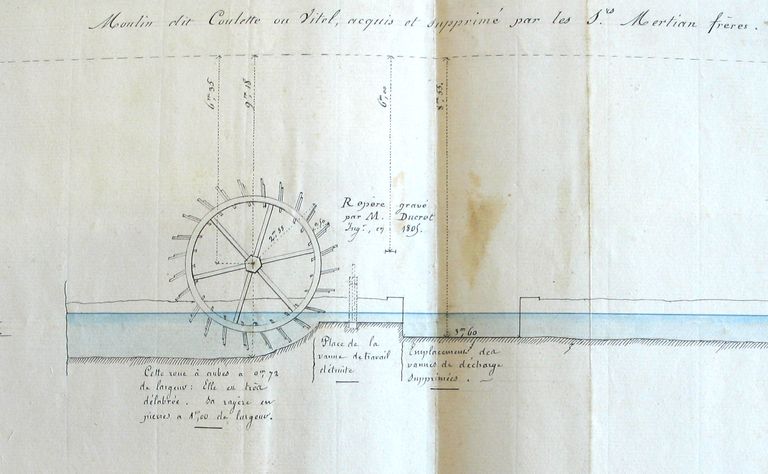 Moulin dit Coulotte ou Vitel, acquis et supprimé par les S.rs Mertian frères.
6m,35
9m,18
6m,00
8m,55.
Repère gravé
par M. Ducrot
Ingr., en 1805.
2m,55
0,50
3m,60
Place de la
vanne de travail
détruite
Emplacement des
vannes de décharge
supprimées.
Cette roue à aubes a 0m,72
de largeur: Elle est très
délabrée. Sa rayère en
pierres a 1m,00 de largeur.